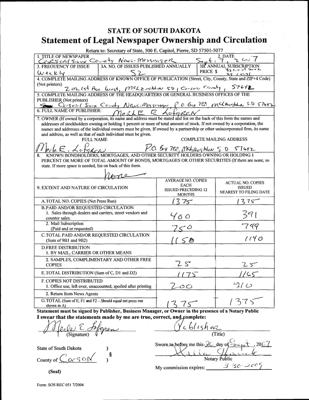 STATE OF SOUTH DAKOTA
Statement of Legal Newspaper Ownership and Circulation
Return to: Secretary of State, 500 E. Capitol, Pierre, SD 57501-5077
1. TITLE OF NEWSPAPER
2. DATE
Corson/Sioux County News-Messenger
Sept. 7, 2007
3. FREQUENCY OF ISSUE
3A. NO. OF ISSUES PUBLISHED ANNUALLY
3B. ANNUAL SUBSCRIPTION
PRICE $
Weekly
52
4. COMPLETE MAILING ADDRESS OF KNOWN OFFICE OF PUBLICATION (Street, City, County, State and ZIP+4 Code)
(Not printers)
McLaughlin SD, Corson County, 57642
5. COMPLETE MAILING ADDRESS OF THE HEADQUARTERS OF GENERAL BUSINESS OFFICES OF THE
PUBLISHER (Not printers)
Corson/Sioux County News-Messenger, P.O. Box 788, McLaughlin, SD 57642
6. FULL NAME OF PUBLISHER:
Merle E Lofgren
7. OWNER (If owned by a corporation, its name and address must be stated and also on the back of this form the names and
addresses of stockholders owning or holding 1 percent or more of total amount of stock. If not owned by a corporation, the
names and addresses of the individual owners must be given. If owned by a partnership or other unincorporated firm, its name
and address, as well as that of each individual must be given.
FULL NAME
COMPLETE MAILING ADDRESS
Merle E. Lofgren
P.O. Box 788, McLaughlin SD 57642
8. KNOWN BONDHOLDERS, MORTGAGES, AND OTHER SECURITY HOLDERS OWNING OR HOLDING 1
PERCENT OR MORE OF TOTAL AMOUNT OF BONDS, MORTGAGES OR OTHER SECURITIES (If there are none, so
state. If more space is needed, list on back of this form.
None
9. EXTENT AND NATURE OF CIRCULATION
AVERAGE NO. COPIES
EACH
ISSUED PRECEDING 12
MONTHS
ACTUAL NO. COPIES
ISSUED
NEAREST TO FILING DATE
A. TOTAL NO. COPIES (Net Press Run)
1375
1375
B. PAID AND/OR REQUESTED CIRCULATION
1. Sales through dealers and carriers, street vendors and
counter sales
400
391
2. Mail Subscription
(Paid and or requested)
750
799
C. TOTAL PAID AND/OR REQUESTED CIRCULATION
(Sum of 9B1 and 9B2)
1150
1190
D. FREE DISTRIBUTION
1. BY MAIL, CARRIER OR OTHER MEANS
2. SAMPLES, COMPLIMENTARY AND OTHER FREE
COPIES
25
25
E. TOTAL DISTRIBUTION (Sum of C, D1 and D2)
1175
F. COPIES NOT DISTRIBUTED
1. Office use, left over, unaccounted, spoiled after printing
200
2. Return from News Agents
G. TOTAL (Sum of E, F1 and F2 - Should equal net press run
shown in A)
1375
1375
Statement must be signed by Publisher, Business Manager, or Owner in the presence of a Notary Public
I swear that the statements made by me are true, correct, and complete:
Merle E Lofgren
Publisher
(Signature)
(Title)
State of South Dakota )
§
County of Corson )
Sworn to before me this day of Sept, 2007
Notary Public
(Seal)
My commission expires: 3-30-2009
Form: SOS REC 051 7/2004